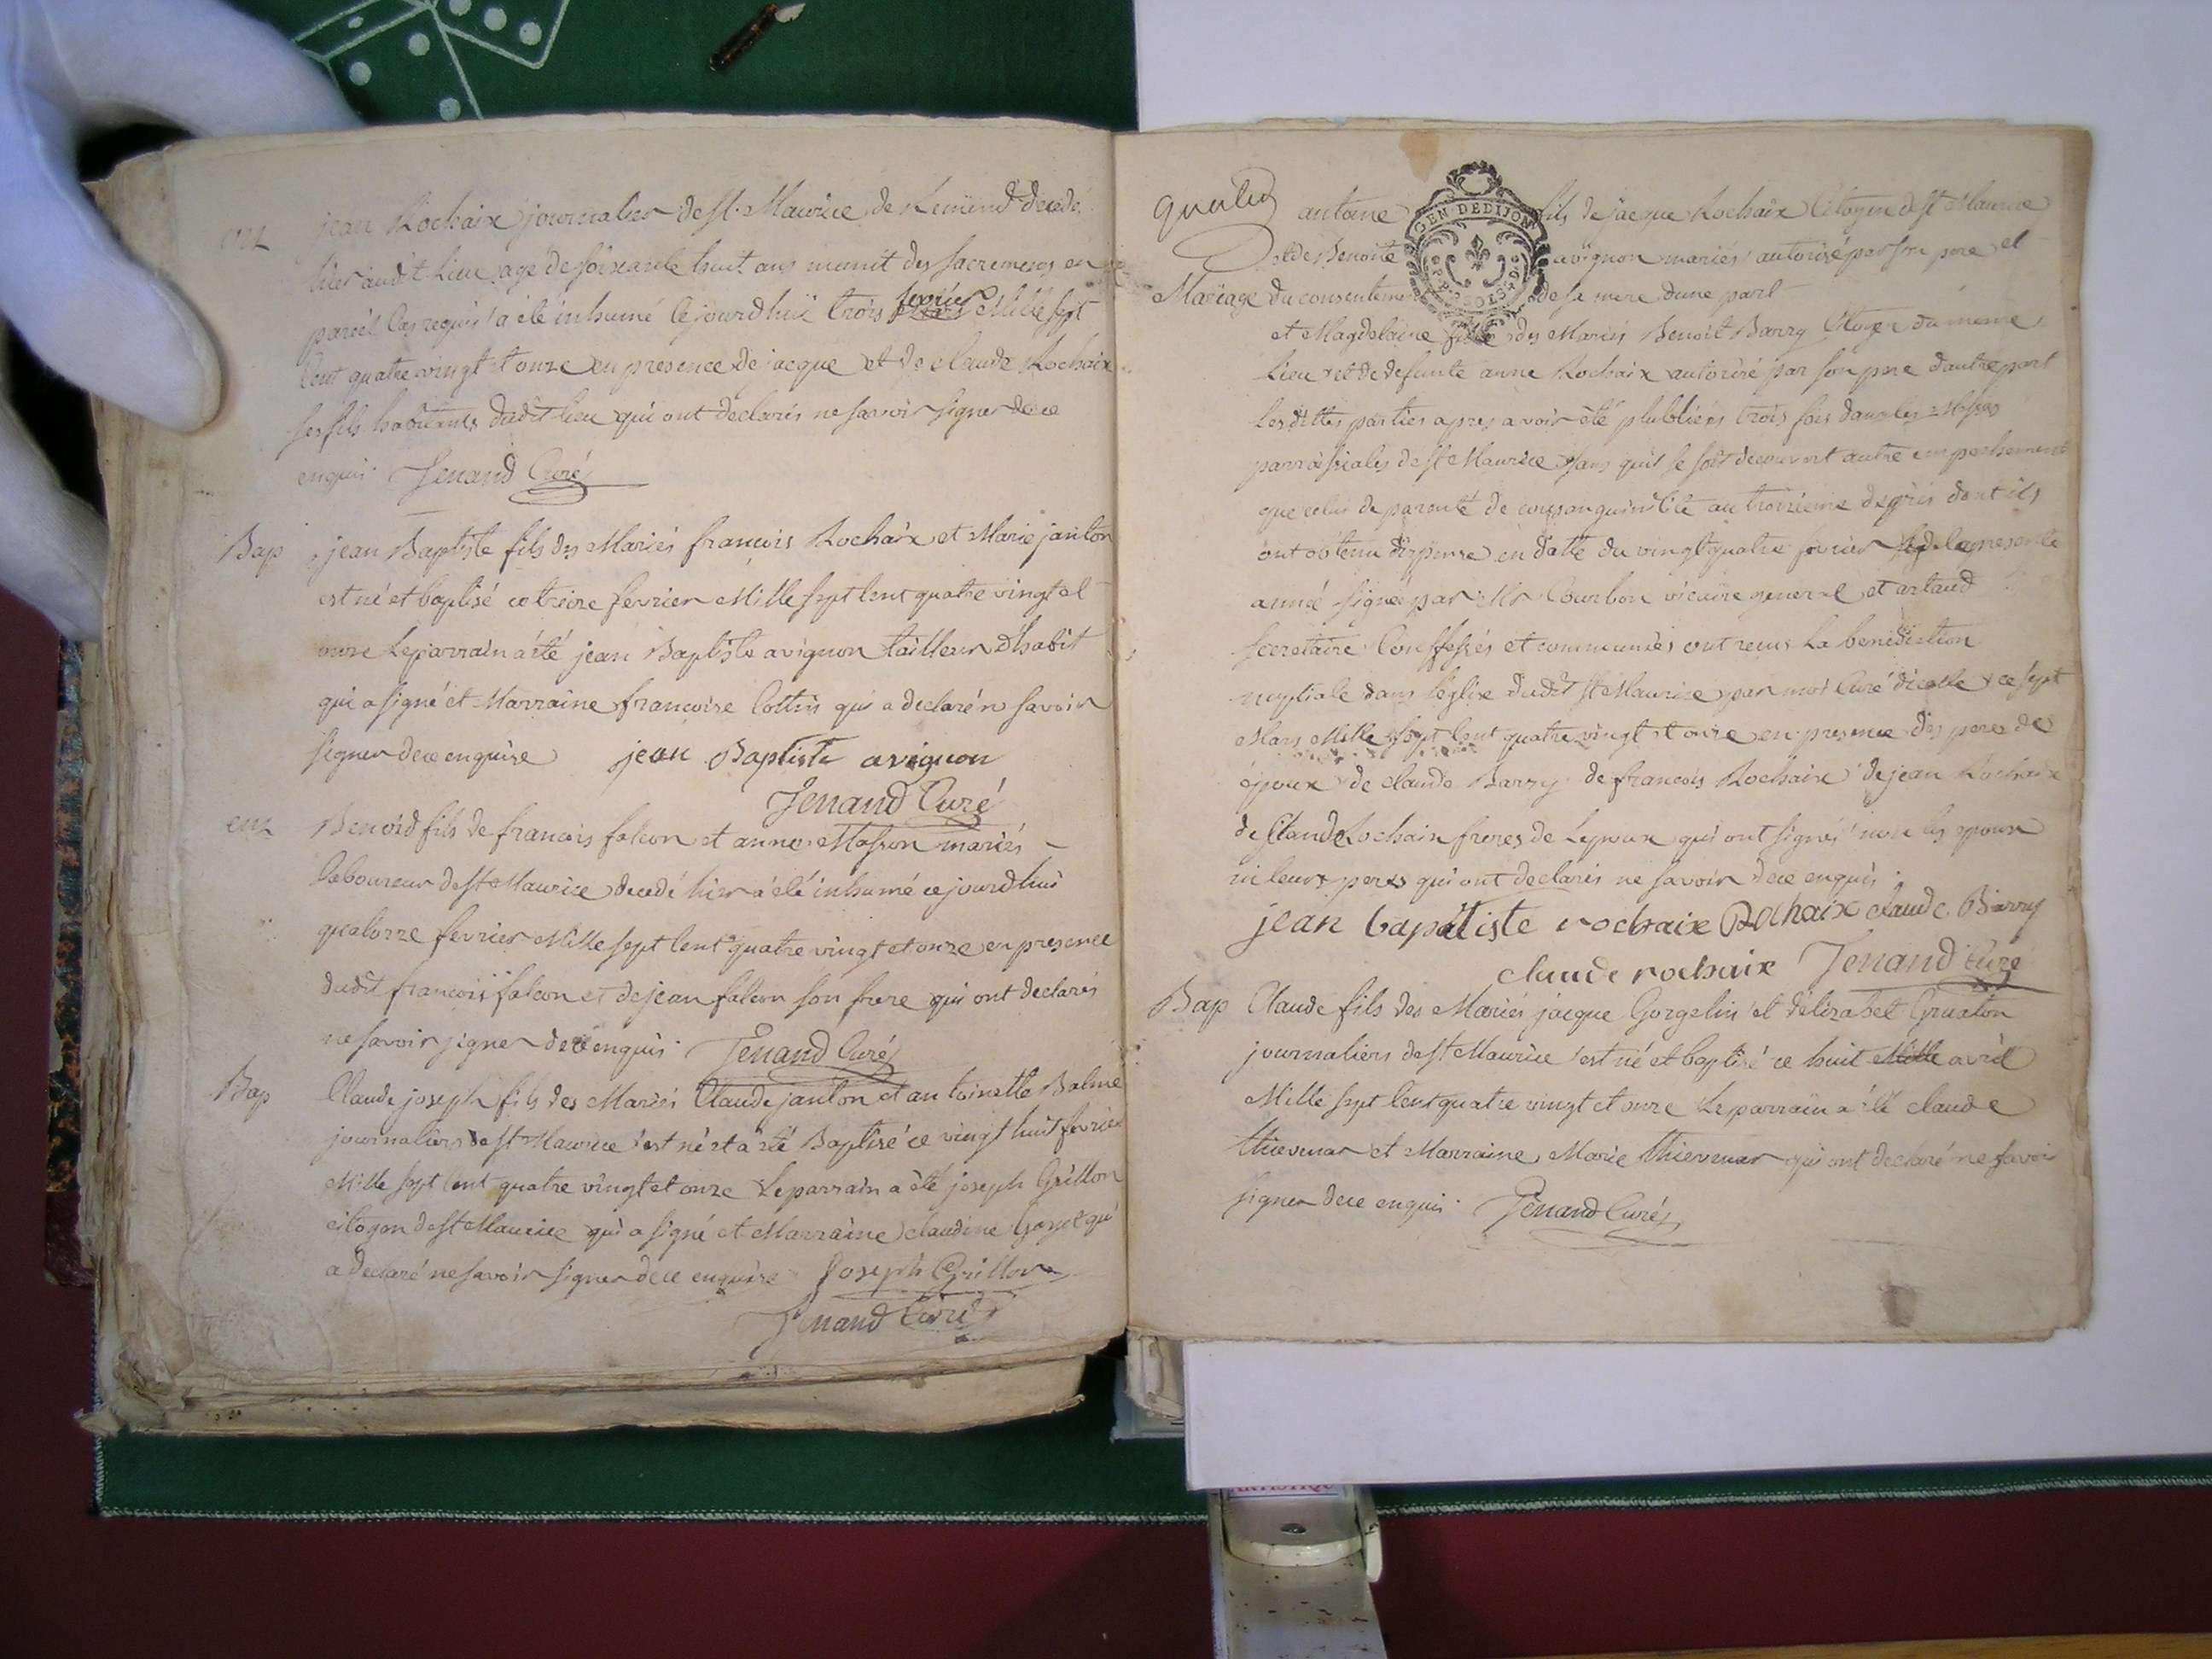 en
jean Rochaix journalier de St. Maurice de Remend decedé
hier audit Lieu agé de soixante huit ans munit des sacremens en
pareil Cas requis a été inhumé Cejourdhui trois fevrier Mille sept
Cent quatre vingt et onze en presence de jacque et de claude Rochaix
ses fils habitants dudit lieu qui ont declarés ne savoir signer de ce
enquis. Jenand Curé
Bap
jean Baptiste fils des Mariés francois Rochaix et Marie janton
est né et baptisé ce treize fevrier Mille sept Cent quatre vingt et
onze Le parrain a été jean Baptiste avignon tailleur d'habit
qui a signé et Marraine francoise Cottin qui a declaré n savoir
signer de ce enquise jean Baptiste avignon
Jenand Curé
en
Benoid fils de francois falcon et anne Masson mariés
laboureur de St Maurice decedé hier a été inhumé ce jourdhui
quatorze fevrier Mille sept Cent quatre vingt et onze en presence
dudit francois falcon et de jean falcon son frere qui ont declarés
ne savoir signer de ce enquis. Jenand Curé
Bap
Claude joseph fils des Mariés Claude janton et antoinette Balme
journaliers de St Maurice est né et a été Baptisé ce vingt huit fevrier
Mille sept Cent quatre vingt et onze Le parrain a été joseph Grillon
citoyen de St Maurice qui a signé et Marraine claudine qui
a declaré ne savoir signer de ce enquise Joseph Grillon
Jenand Curé
GEN DEDIJON
antoine fils de jacque Rochaix Citoyen de St Maurice
et de Benoite avignon mariés autorisé par son pere et
Mariage du consenteme de sa mere dune part
et Magdelaine fille des Mariés Benoit Barry Citoyen du meme
Lieu et de defunte anne Rochaix autorisé par son pere dautre part
Les dittes parties apres avoir été plubliées trois fois dans les Messes
parroissiales de St Maurice sans quil se soit decouvert autre empechement
que celui de parenté de consanguinitité au troisieme degrés dont ils
ont obtenu dispense en datte du vingt quatre fevrier de la presente
année signée par Mr Courbon vicaire general et artaud
secretaire Confessés et communiés ont recus La benediction
nuptiale dans l'eglise dudit St Maurice par moi Curé dicelle ce sept
Mars Mille sept Cent quatre vingt et onze en presence des peres des
époux de claude Barry de francois Rochaix de jean Rochaix
de Claude Rochaix freres de Lepoux qui ont signés non les epoux
ni leurs peres qui ont declarés ne savoir de ce enquis.
jean bapatiste rochaix Rochaix claude Barry
claude rochaix Jenand Curé
Bap Claude fils des Mariés jacque Gorgelin et delizabet Gruaton
journaliers de St Maurice est né et baptisé ce huit Mille avril
Mille sept Cent quatre vingt et onze Le parrain a été claude
thievenar et Marraine Marie thievenar qui ont declaré ne savoir
signer de ce enquis. Jenand Curé